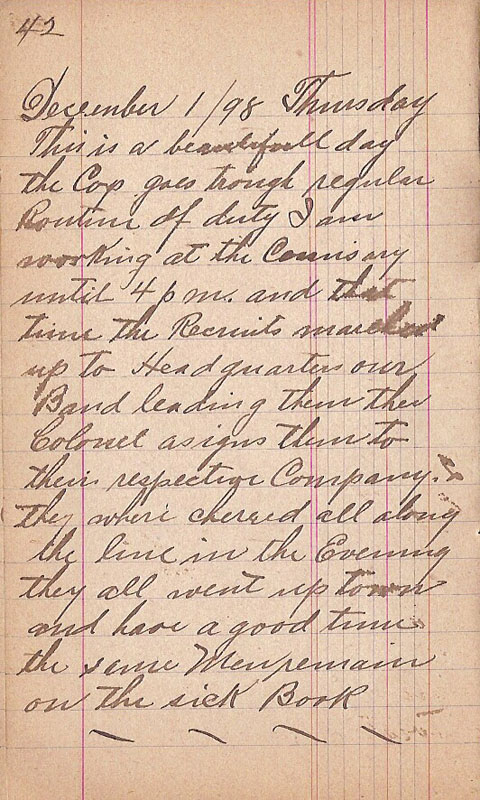 42
December 1/98 Thursday
This is a beautifull day
the Cop goes trough regular
Routine of duty I am
working at the Comisary
until 4 pm. and that
time the Recruits marched
up to Headquarters our
Band leading them the
Colonel asigns them to
their respective Company.
they where cheered all along
the line in the Evening
they all went up town
and have a good time
the same Men remain
on the sick Book